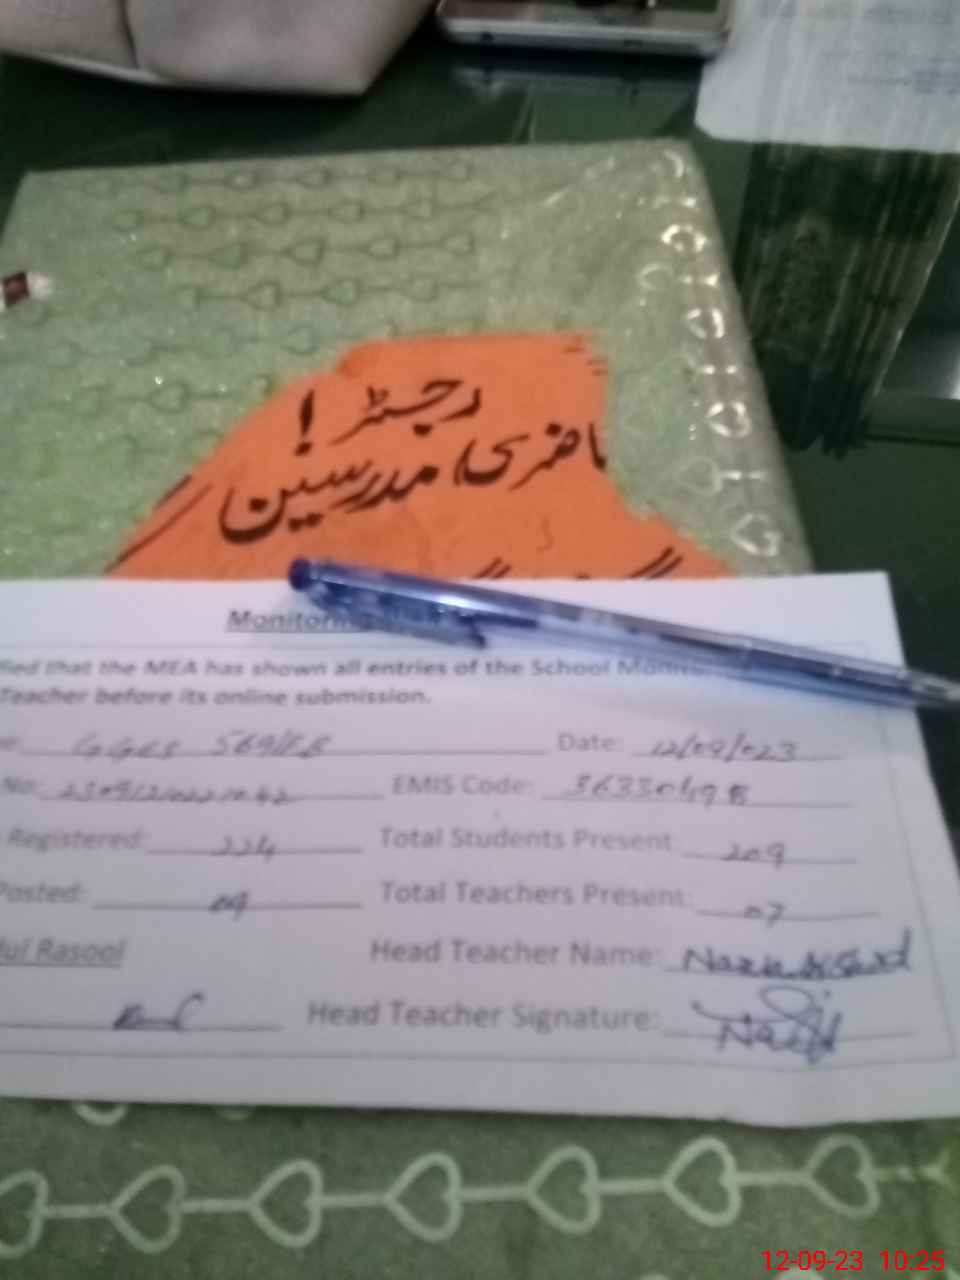 رجسٹر !
حاضری مدرسین
Monitoring
fied that the MEA has shown all entries of the School
Teacher before its online submission.
GGES 569/EB Date: 12/09/023
No: EMIS Code: 36330498
Registered: 224 Total Students Present: 209
Posted: 09 Total Teachers Present: 07
dul Rasool Head Teacher Name:
Head Teacher Signature:
12-09-23 10:25